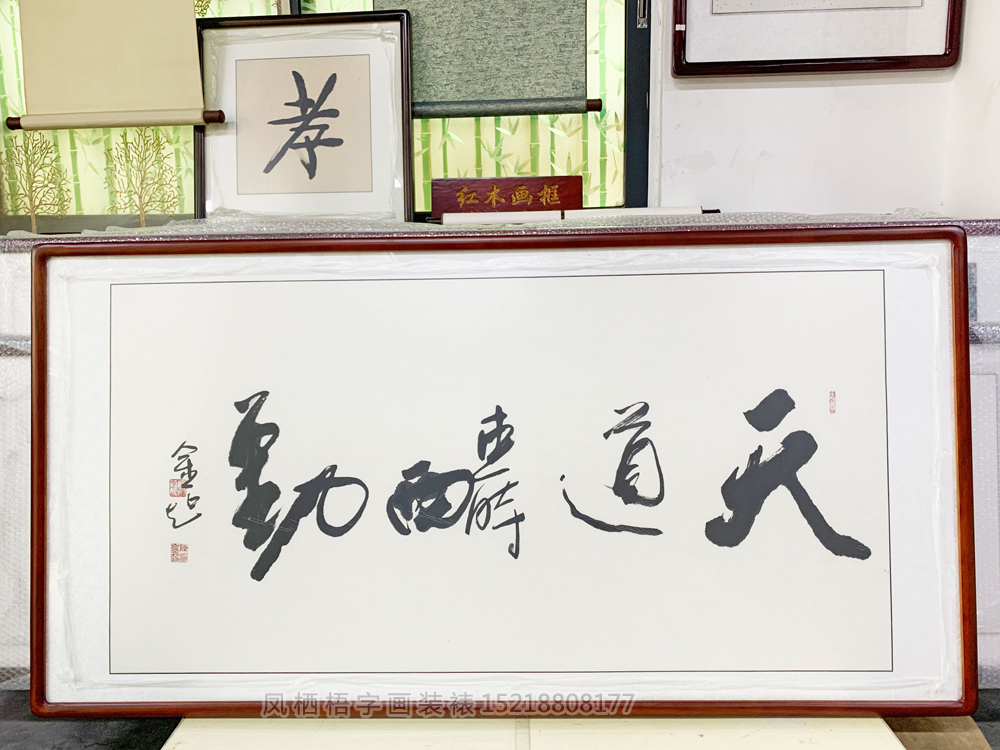 孝
红木画框
天道醻勤
凤栖梧字画装裱15218808177